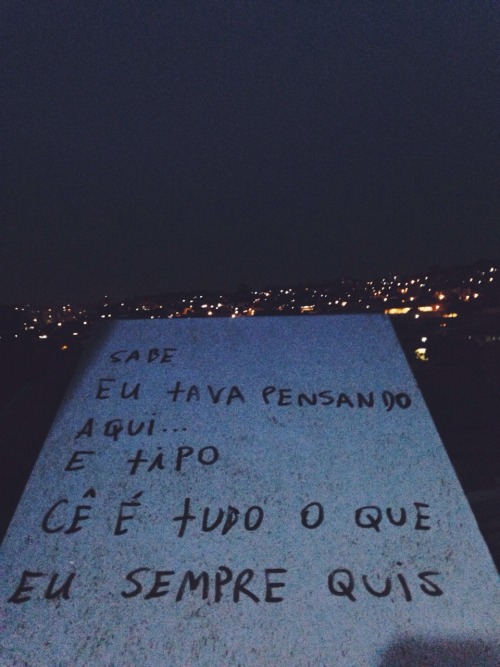 SABE
EU TAVA PENSANDO
AQUI...
E TIPO
CÊ É TUDO O QUE
EU SEMPRE QUIS